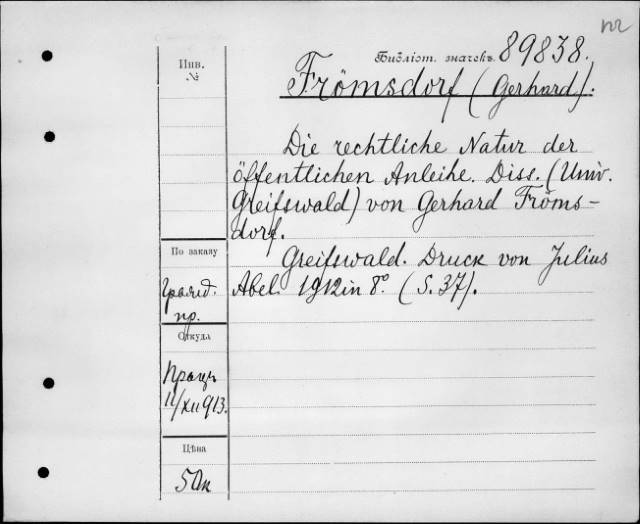 nr
Библіот. значекъ 89838.
Инв.
№
Frömsdorf (Gerhard).
Die rechtliche Natur der
öffentlichen Anleihe. Diss. (Univ.
Greifswald) von Gerhard Fröms-
dorf.
Greifswald. Druck von Julius
Abel. 1912 in 8°. (S. 37).
По заказу
пр.
Откуда
11/XII 913.
Цѣна
50